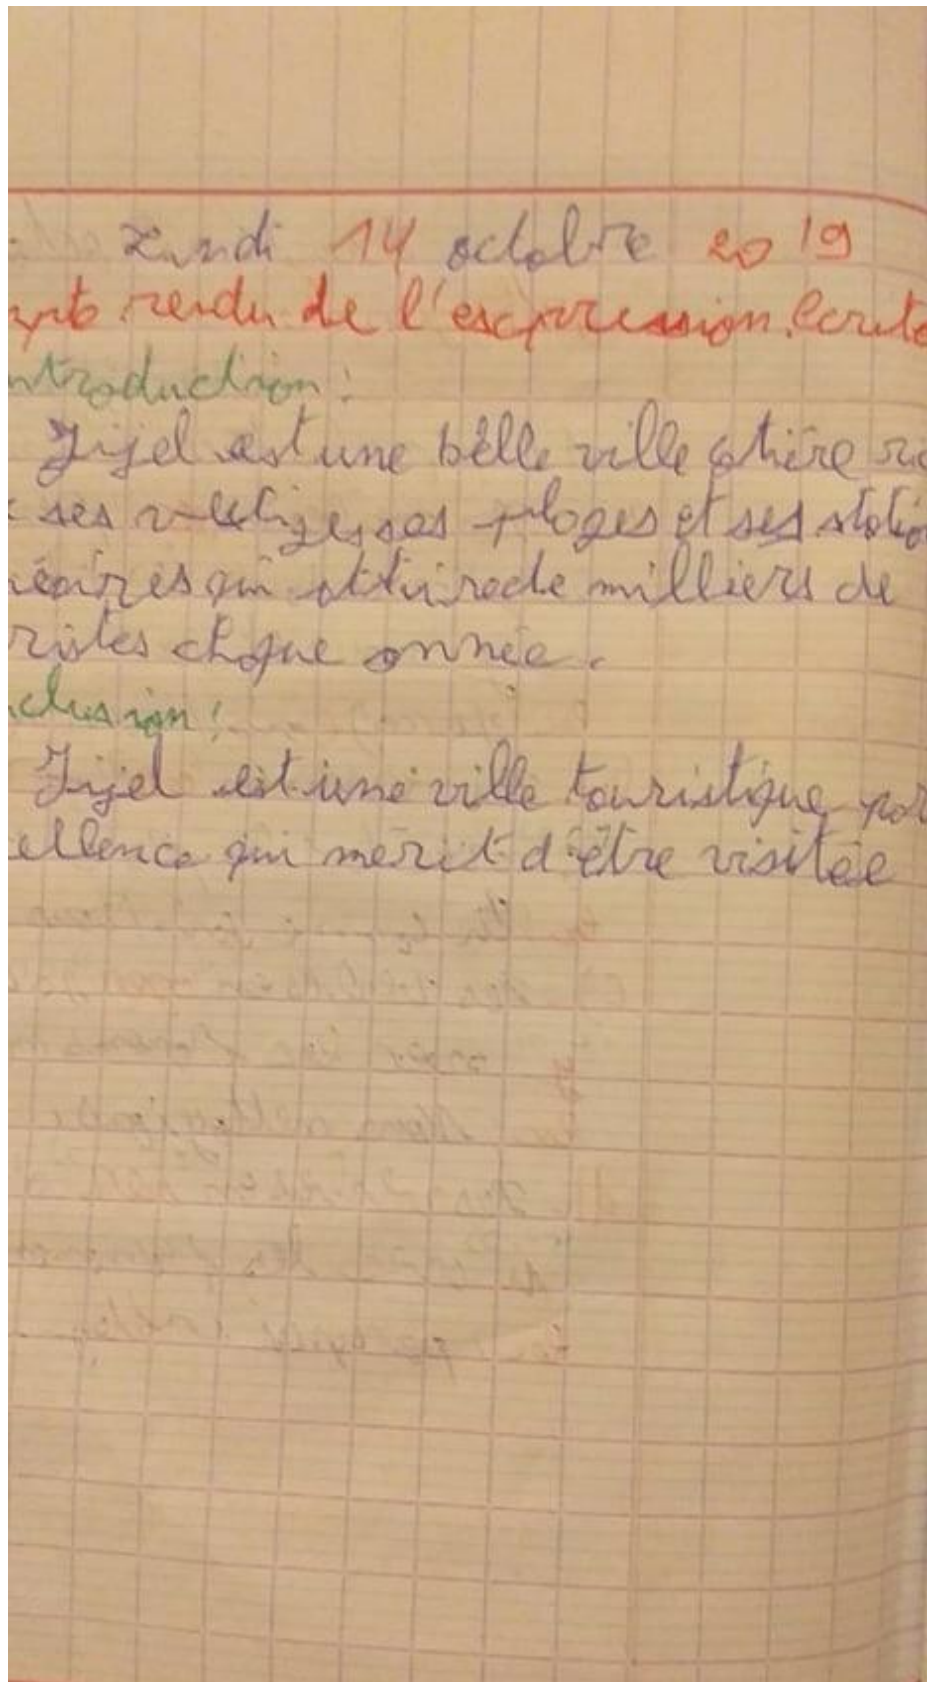 Lundi 14 octobre 2019
rendu de l'expression écrite
ntroduction :
Jijel est une belle ville côtière
ses vestiges, ses plages et ses statio
néaires qui attire de milliers de
ristes chaque année.
clusion :
Jijel est une ville touristique par
ellence qui mérit d'être visitée